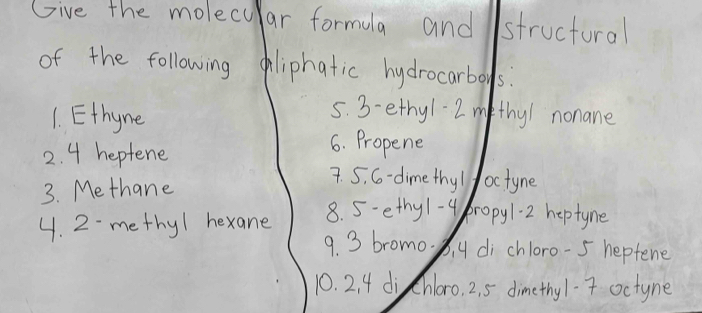 Give the molecular formula and structural
of the following aliphatic hydrocarbons:
1. Ethyne
2. 4 heptene
3. Methane
4. 2-methyl hexane
5. 3-ethyl-2 methyl nonane
6. Propene
7. 5,6-dimethyl octyne
8. 5-ethyl-4 propyl-2 heptyne
9. 3 bromo-3,4 di chloro-5 heptene
10. 2,4 di chloro, 2,5 dimethyl-7 octyne